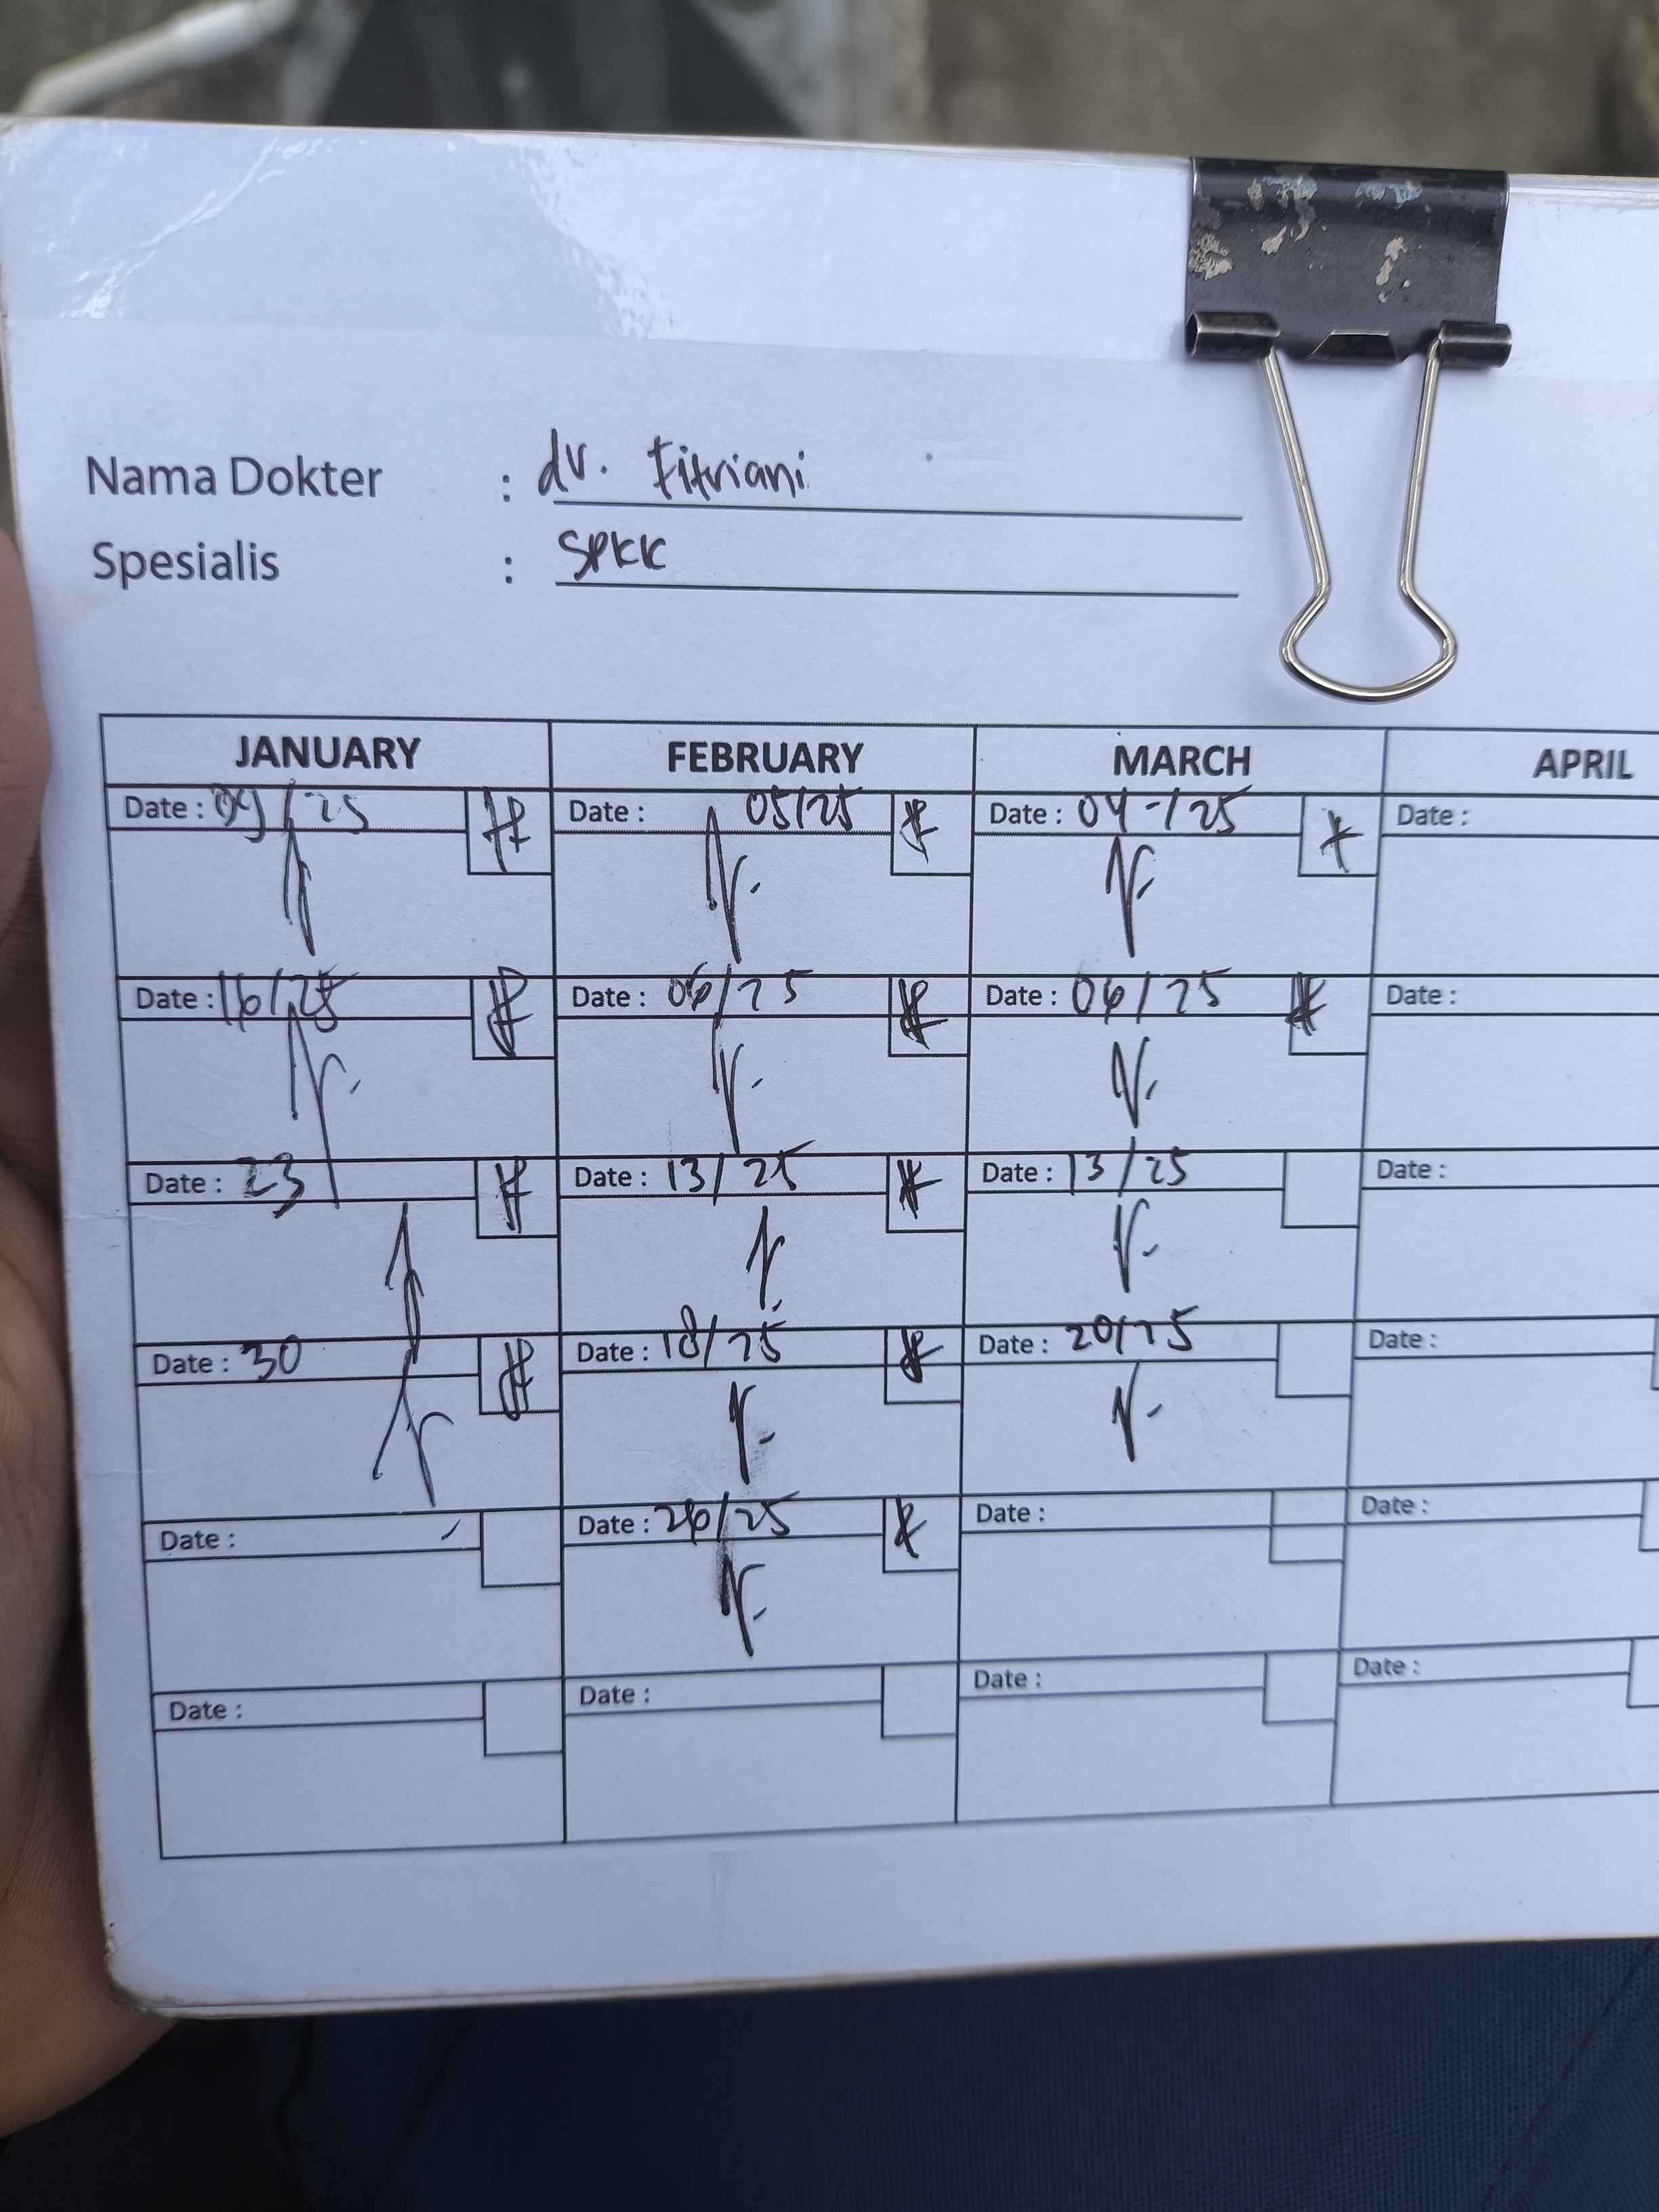 Nama Dokter : dr. Fitriani
Spesialis : SPKK
JANUARY FEBRUARY MARCH APRIL
Date : 09/25 Date : 05/25 Date : 04-/25 Date :
Date : 16/25 Date : 06/25 Date : 06/25 Date :
Date : 23 Date : 13/25 Date : 13/25 Date :
Date : 30 Date : 18/25 Date : 20/25 Date :
Date : Date : 26/25 Date : Date :
Date : Date : Date : Date :